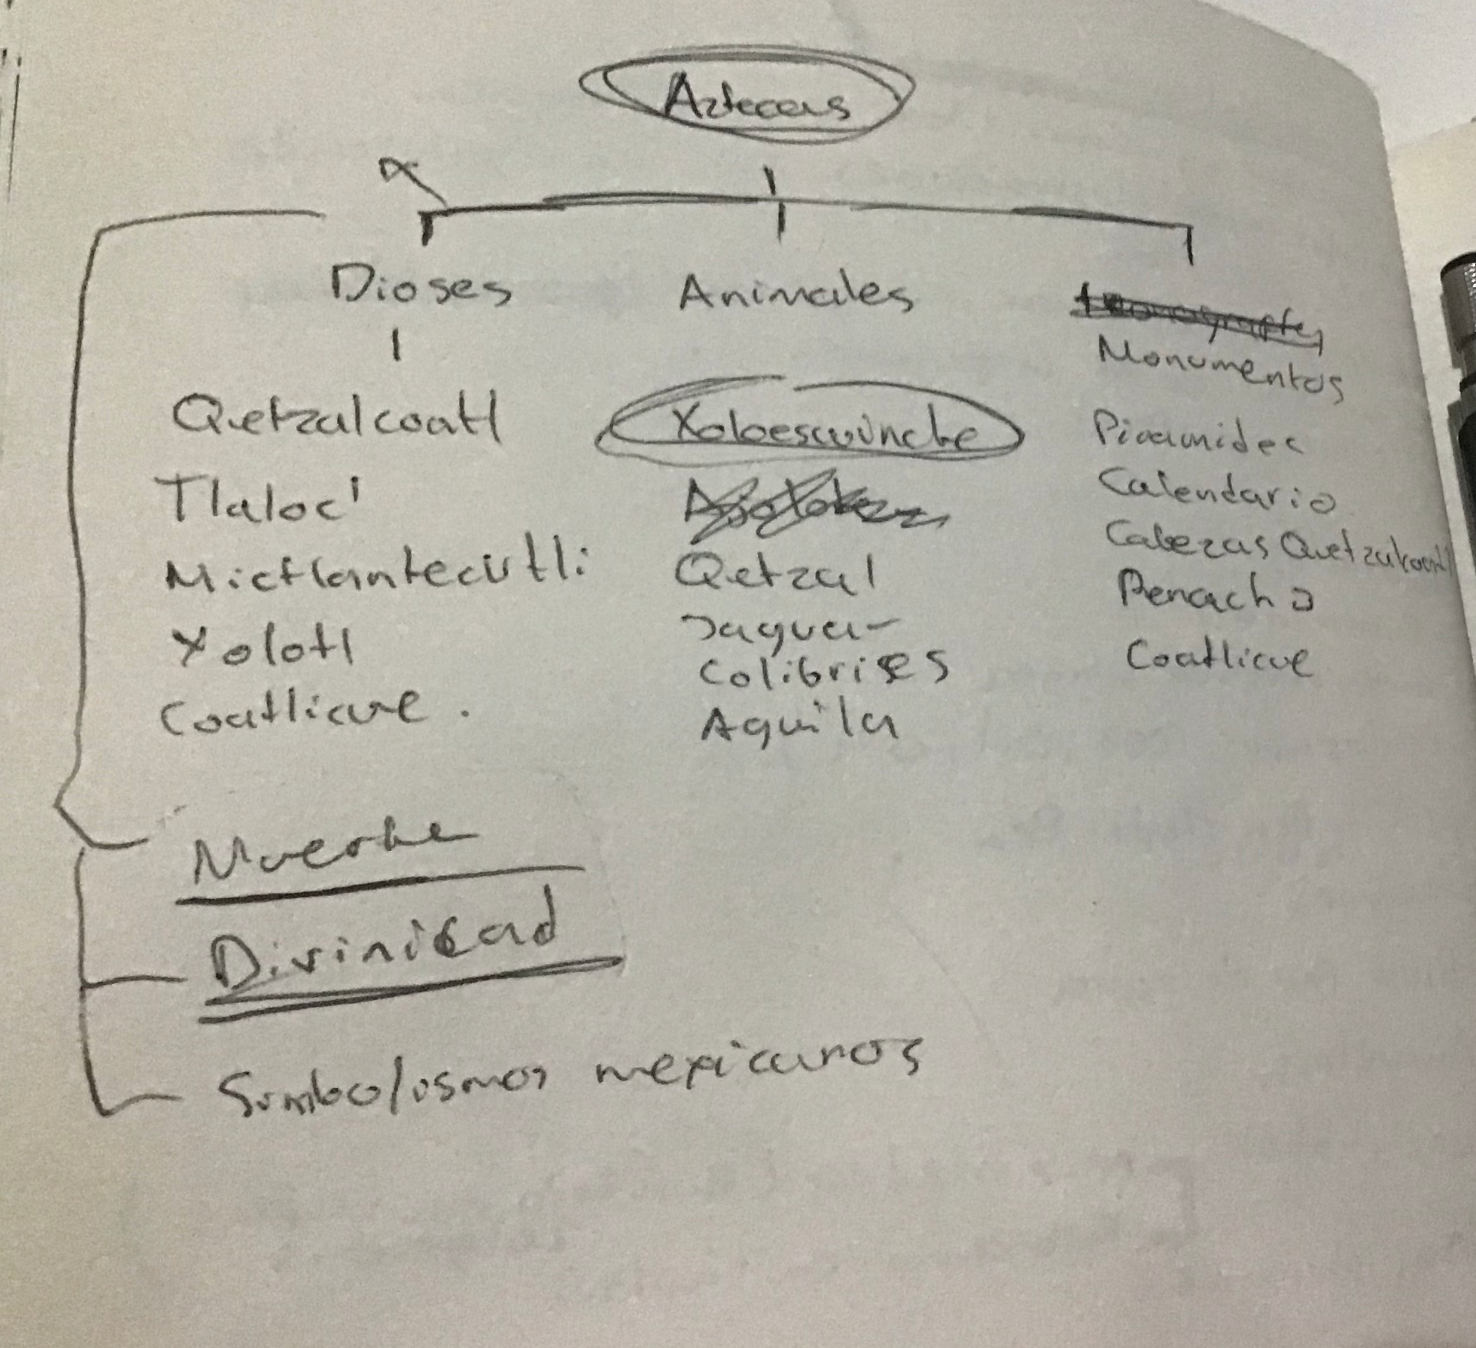 Aztecas
Dioses
Qetzalcoatl
Tlaloc'
Mictlantecutli
Xolotl
Coatlicue.
Animales
Xoloescuincle
Qetzal
Jaguar
Colibries
Aguila
Monumentos
Piramides
Calendario
Cabezas Quetzalcoatl
Penacho
Coatlicue
Muerte
Divinidad
Simbolismos mexicanos